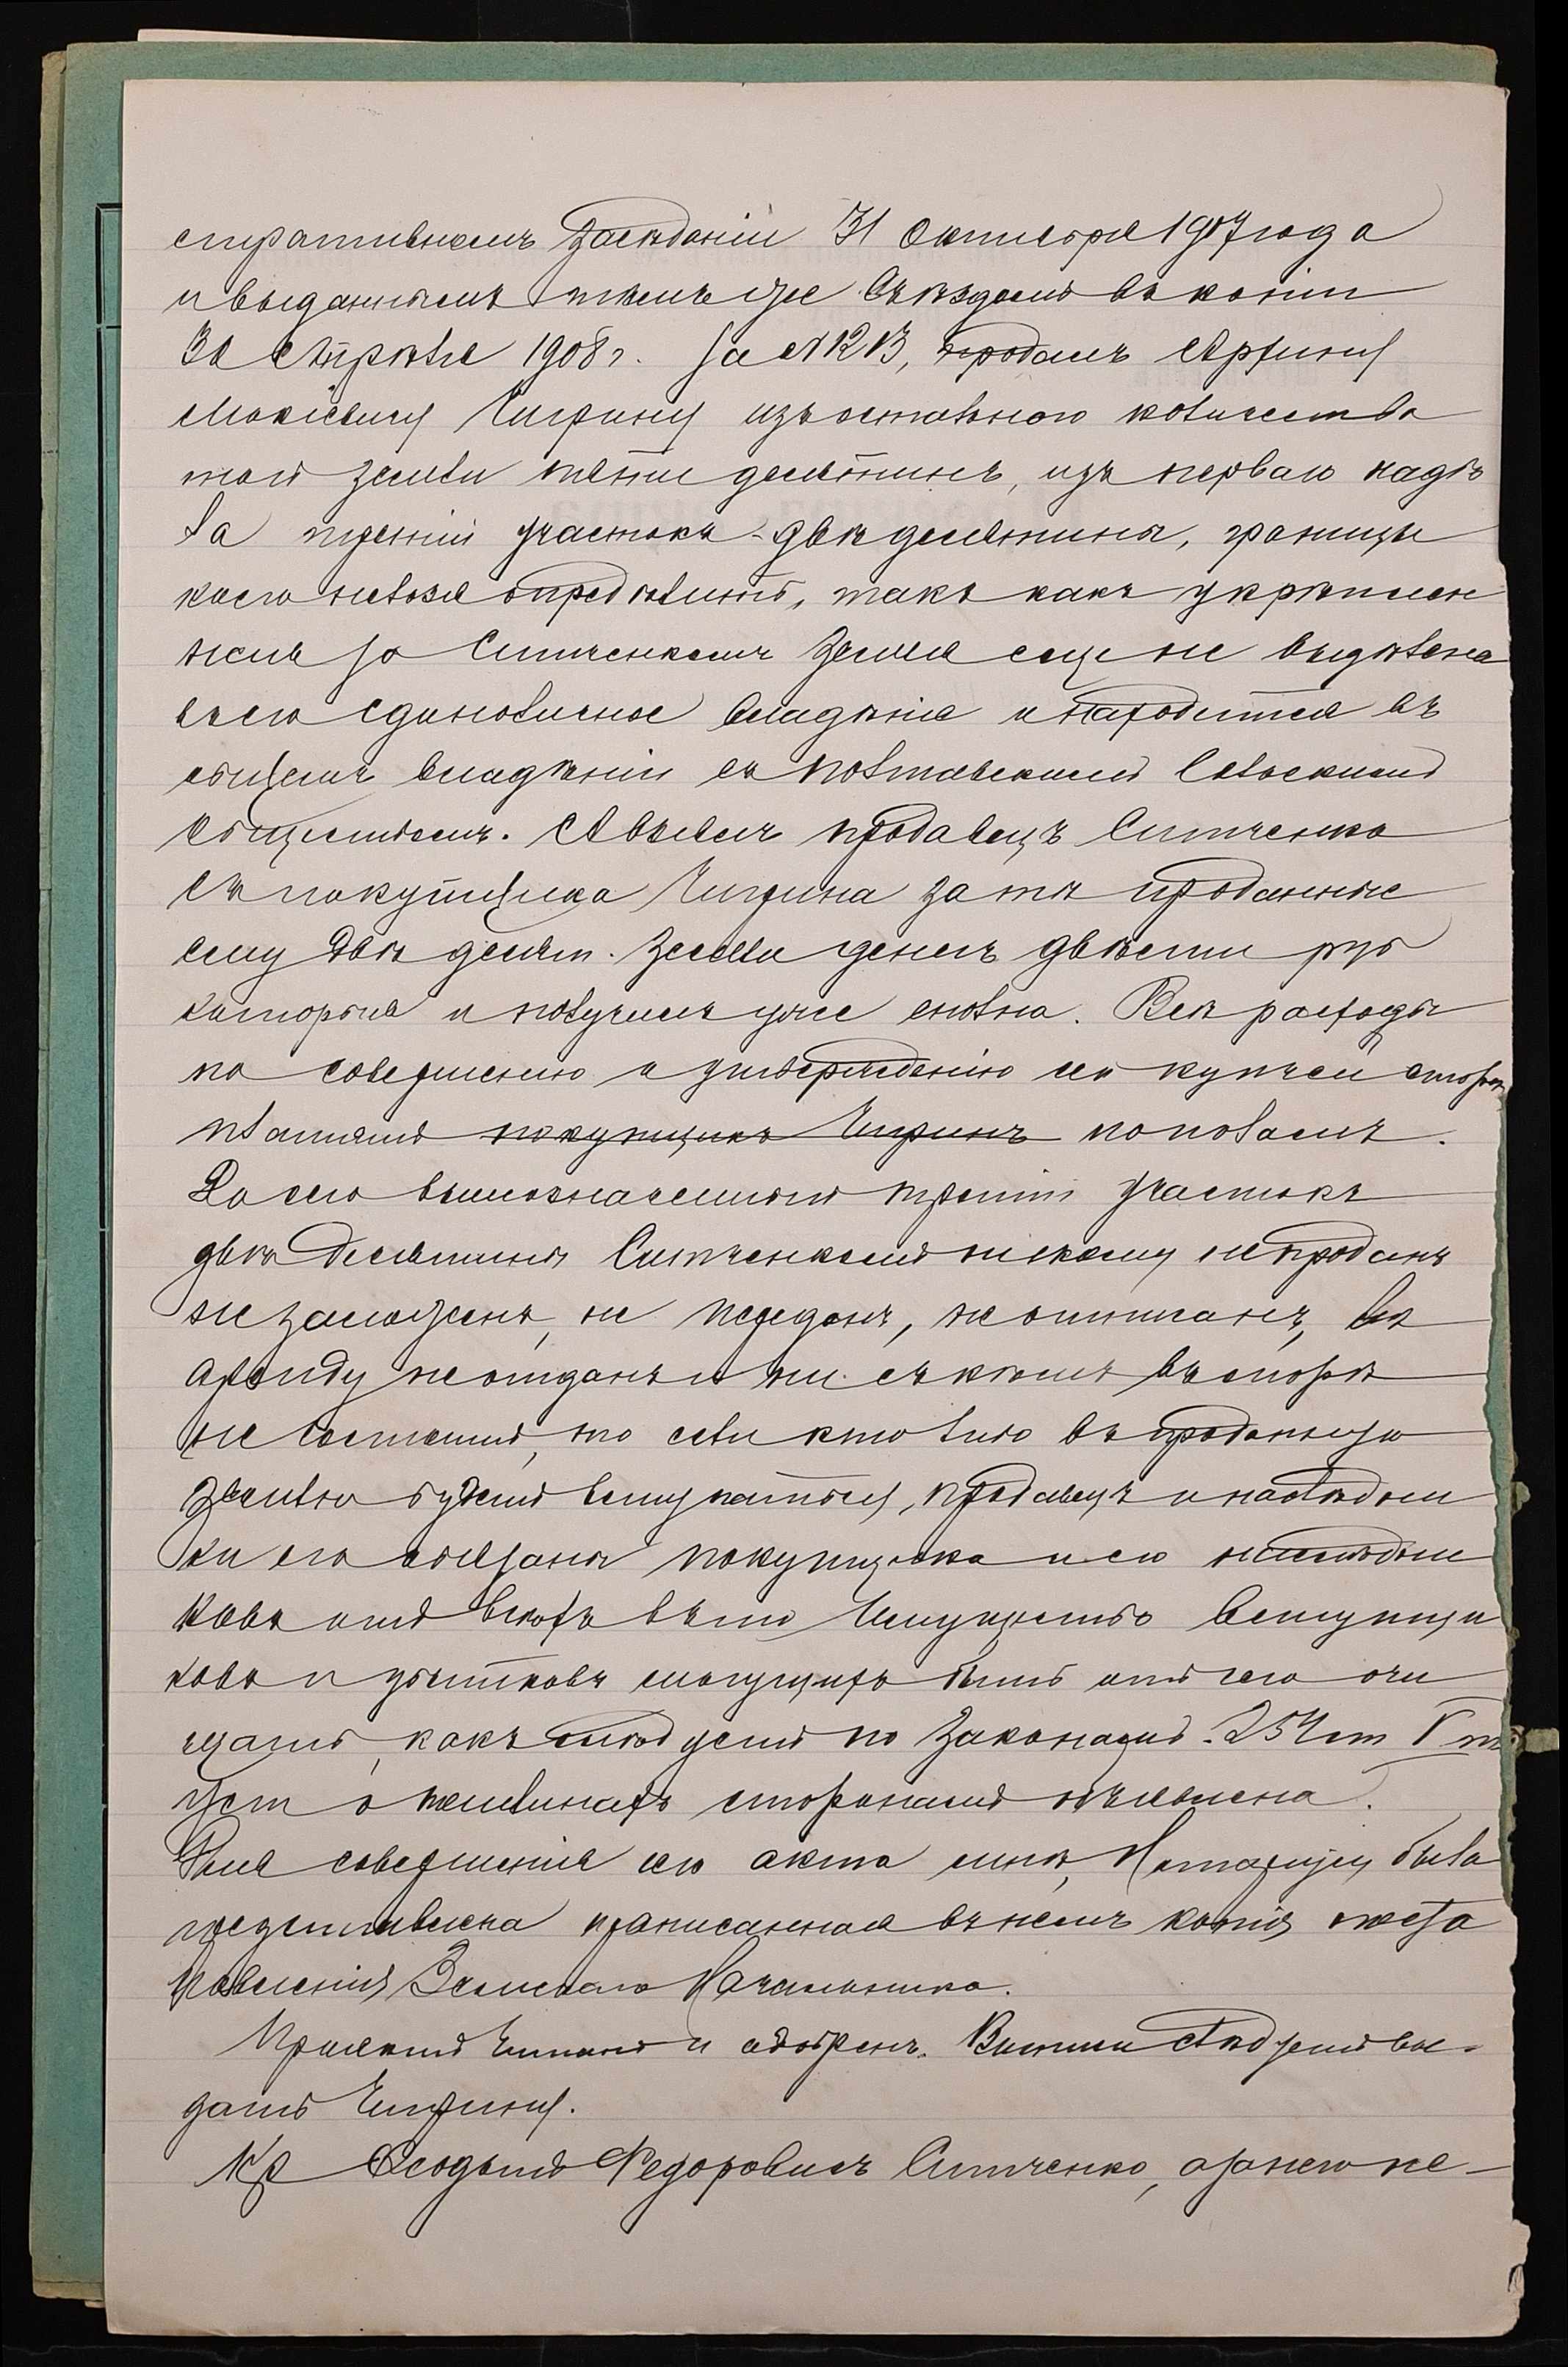 стративномъ Засѣданіи 31 Октября 1907 года
и выданнымъ тѣмъ же Съѣздомъ въ копіи
30 Апрѣля 1908 г. за №1213, продалъ
Мокіевичу Чигрину изъ остального количества
той земли пяти десятинъ, изъ перваго надѣ
ла третій участокъ - двѣ десятины, границы
коего нельзя опредѣлить, такъ какъ укрѣплен
ная за Ситченкомъ Земля еще не выдѣлена
въ его единоличное владѣніе и находится въ
общемъ владѣніи съ Полтавскимъ Сельскимъ
Обществомъ. А взялъ продавецъ Ситченко
съ покупщика Чигрина за тѣ проданные
ему двѣ десят. земли денегъ двѣсти руб
которые и получилъ уже сполна. Всѣ расходы
по совершенію и утвержденію сей купчей стороны
платятъ покупщикъ Чигринъ пополамъ.
До сего вышеозначенный третій участокъ
двѣ десятины Ситченкомъ никому не проданъ
не заложенъ, не переданъ, не описанъ, въ
аренду не отданъ и ни съ кѣмъ въ спорѣ
не состоитъ, но если кто либо въ проданную
землю будетъ вступаться, продавецъ и наслѣдни
ки его обязаны покупщика и его наслѣдни
ковъ отъ всѣхъ въ то Имущество вступщи
ковъ и убытковъ могущихъ быть отъ того очи
щать, какъ слѣдуетъ по Законамъ. 254 ст V т
Уст о пошлинахъ сторонамъ объявлена.
Для совершенія сего акта мнѣ, Нотаріусу, была
представлена прописанная въ немъ копія
новленія Земскаго Начальника.
Проектъ читанъ и одобренъ. Выпись слѣдуетъ вы-
дать Чигрину.
Кр Ѳеодотъ Федоровичъ Ситченко, а за него не-